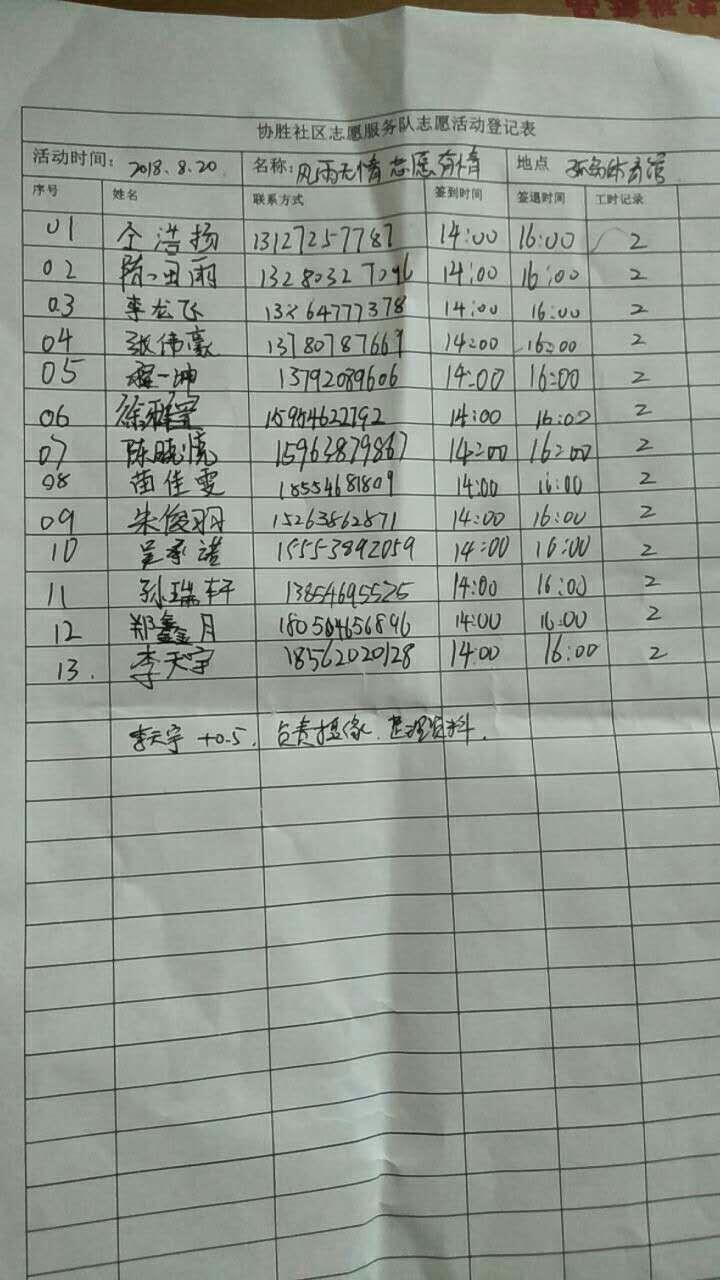 协胜社区志愿服务队志愿活动登记表
活动时间: 2018.8.20 名称: 风雨无情 志愿有情 地点 孤岛体育馆
序号 姓名 联系方式 签到时间 签退时间 工时记录
01 仝浩扬 13127257787 14:00 16:00 2
02 14:00 16:00 2
03 李龙飞 14:00 16:00 2
04 张伟豪 13780787667 14:00 16:00 2
05 程一坤 13792089606 14:00 16:00 2
06 15954622792 14:00 16:00 2
07 陈晓倩 15963879867 14:00 16:00 2
08 苗佳雯 18554681809 14:00 16:00 2
09 朱俊羽 15263862871 14:00 16:00 2
10 吴承诺 15553892059 14:00 16:00 2
11 孙瑞轩 13854695525 14:00 16:00 2
12 郑鑫月 14:00 16:00 2
13. 李天宇 18562020128 14:00 16:00 2
李天宇 +0.5. 负责摄像. 整理资料.